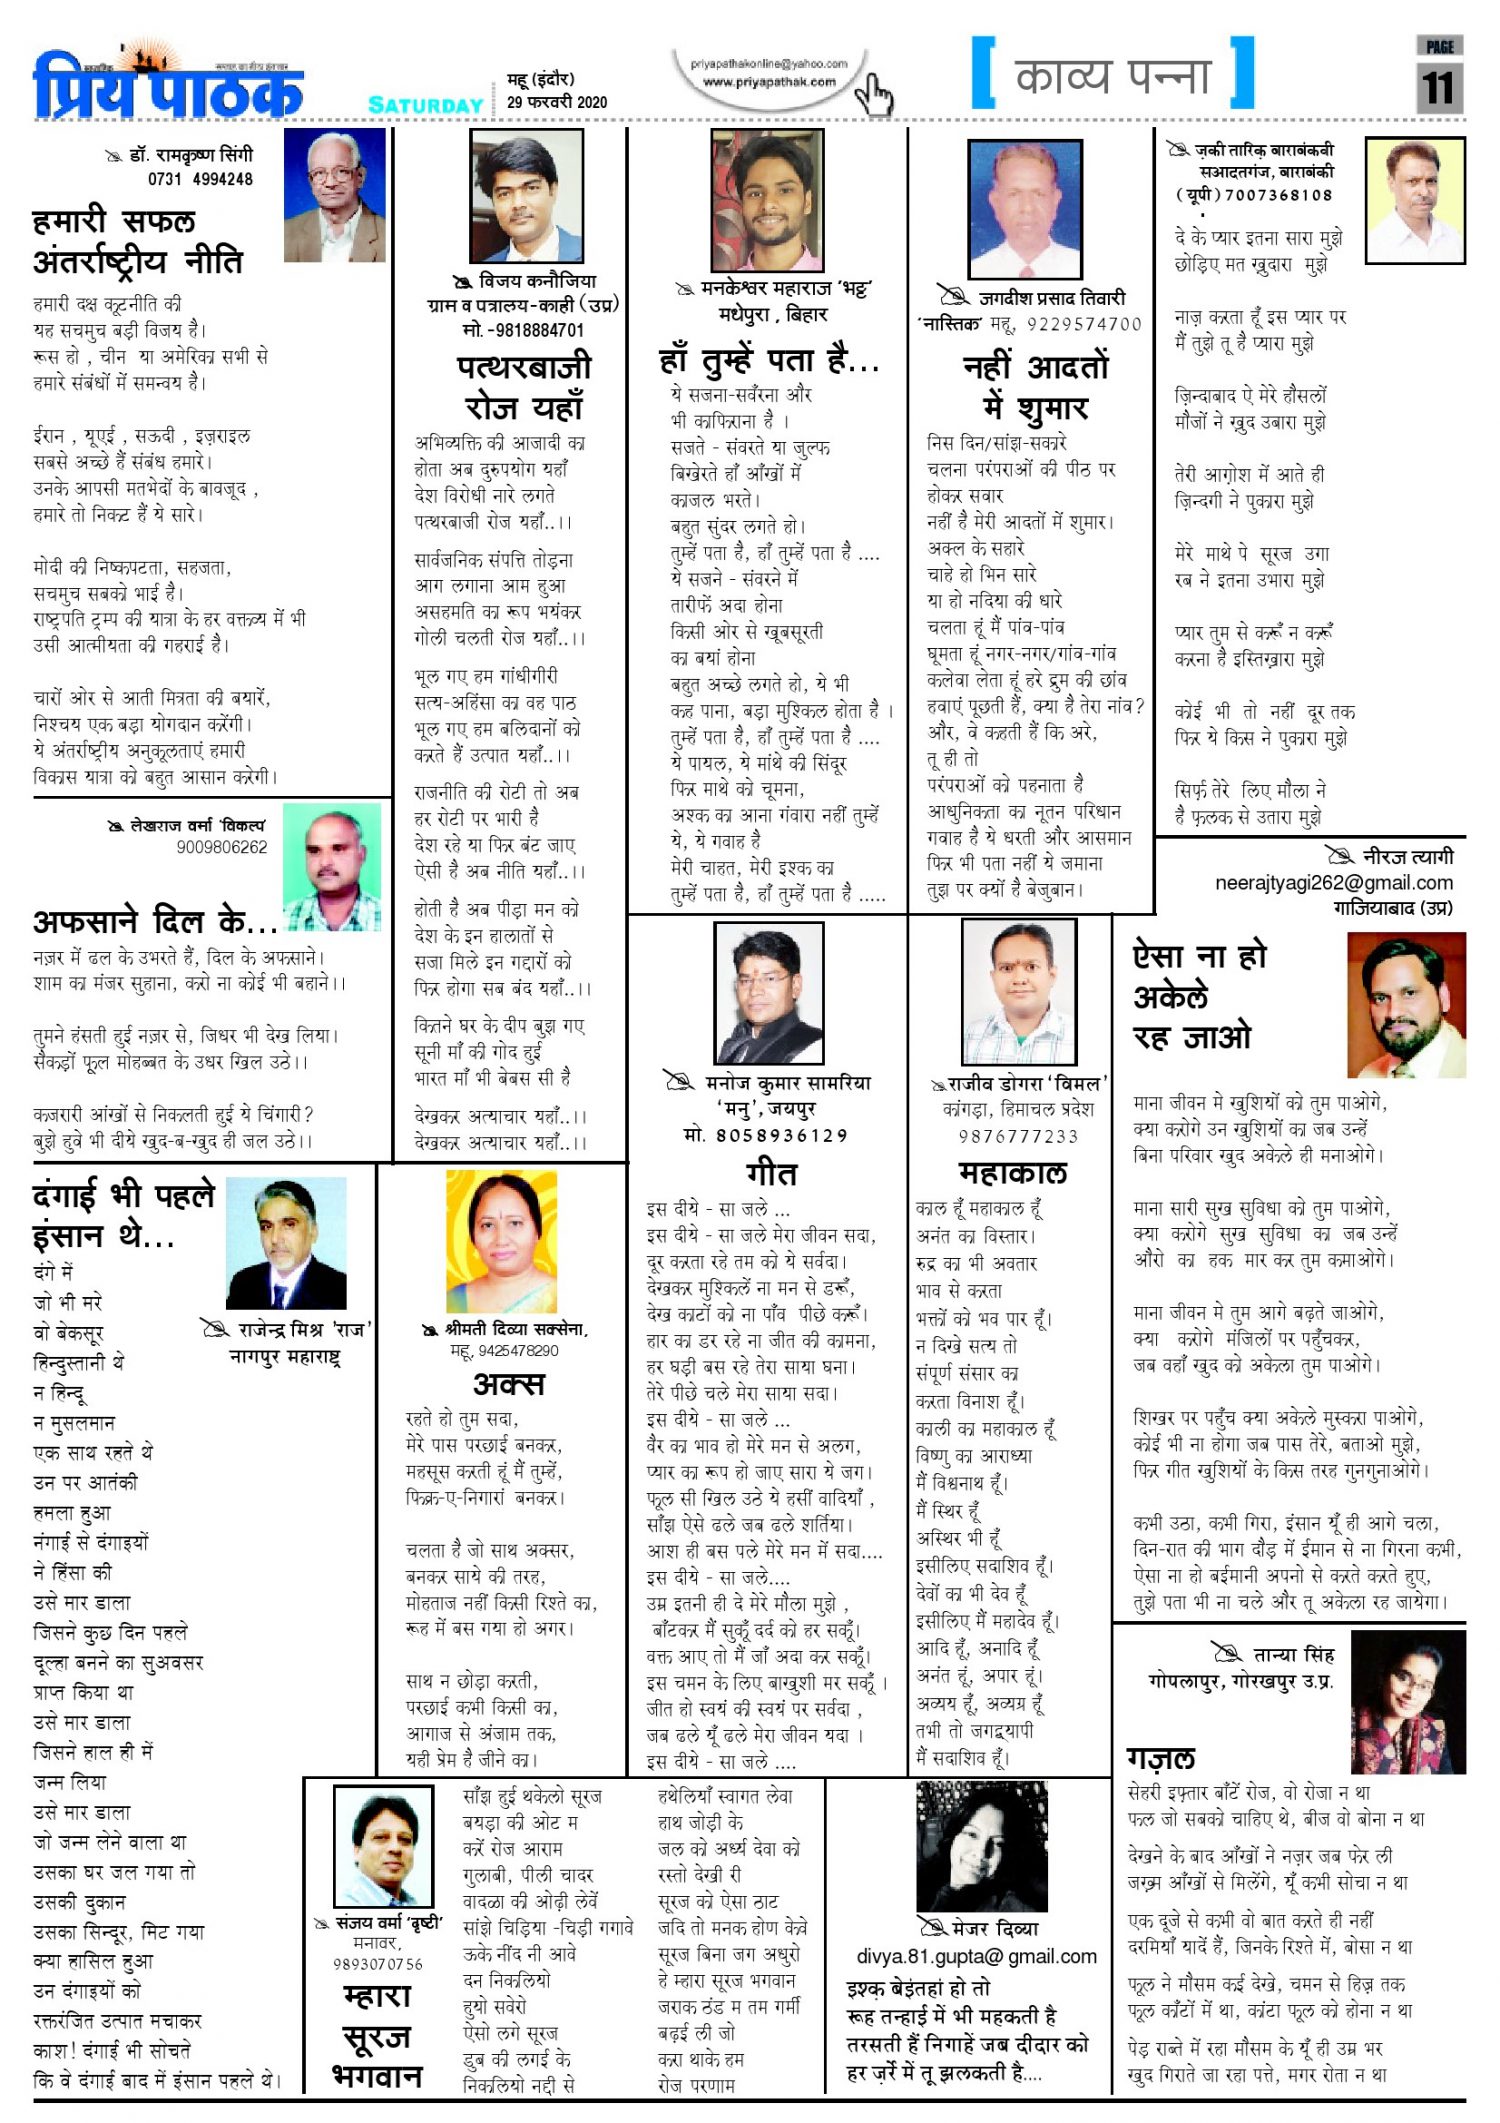 प्रिय पाठक
SATURDAY
महू (इंदौर)
29 फरवरी 2020
priyapathakonline@yahoo.com
www.priyapathak.com
[ काव्य पन्ना ]
PAGE
11
डॉ. रामकृष्ण सिंगी
0731 4994248
हमारी सफल
अंतर्राष्ट्रीय नीति
हमारी दक्ष कूटनीति की
यह सचमुच बड़ी विजय है।
रूस हो , चीन या अमेरिका सभी से
हमारे संबंधों में समन्वय है।
ईरान , यूएई , सऊदी , इज़राइल
सबसे अच्छे हैं संबंध हमारे।
उनके आपसी मतभेदों के बावजूद ,
हमारे तो निकट हैं ये सारे।
मोदी की निष्कपटता, सहजता,
सचमुच सबको भाई है।
राष्ट्रपति ट्रम्प की यात्रा के हर वक्तव्य में भी
उसी आत्मीयता की गहराई है।
चारों ओर से आती मित्रता की बयारें,
निश्चय एक बड़ा योगदान करेंगी।
ये अंतर्राष्ट्रीय अनुकूलताएं हमारी
विकास यात्रा को बहुत आसान करेगी।
लेखराज वर्मा 'विकल्प'
9009806262
अफसाने दिल के...
नज़र में ढल के उभरते हैं, दिल के अफसाने।
शाम का मंजर सुहाना, करो ना कोई भी बहाने।।
तुमने हंसती हुई नज़र से, जिधर भी देख लिया।
सैकड़ों फूल मोहब्बत के उधर खिल उठे।।
कजरारी आंखों से निकलती हुई ये चिंगारी?
बुझे हुवे भी दीये खुद-ब-खुद ही जल उठे।।
दंगाई भी पहले
इंसान थे...
राजेन्द्र मिश्र 'राज'
नागपुर महाराष्ट्र
दंगे में
जो भी मरे
वो बेकसूर
हिन्दुस्तानी थे
न हिन्दू
न मुसलमान
एक साथ रहते थे
उन पर आतंकी
हमला हुआ
नंगाई से दंगाइयों
ने हिंसा की
उसे मार डाला
जिसने कुछ दिन पहले
दूल्हा बनने का सुअवसर
प्राप्त किया था
उसे मार डाला
जिसने हाल ही में
जन्म लिया
उसे मार डाला
जो जन्म लेने वाला था
उसका घर जल गया तो
उसकी दुकान
उसका सिन्दूर, मिट गया
क्या हासिल हुआ
उन दंगाइयों को
रक्तरंजित उत्पात मचाकर
काश! दंगाई भी सोचते
कि वे दंगाई बाद में इंसान पहले थे।
विजय कनौजिया
ग्राम व पत्रालय-काही (उप्र)
मो.-9818884701
पत्थरबाजी
रोज यहाँ
अभिव्यक्ति की आजादी का
होता अब दुरुपयोग यहाँ
देश विरोधी नारे लगते
पत्थरबाजी रोज यहाँ..।।
सार्वजनिक संपत्ति तोड़ना
आग लगाना आम हुआ
असहमति का रूप भयंकर
गोली चलती रोज यहाँ..।।
भूल गए हम गांधीगीरी
सत्य-अहिंसा का वह पाठ
भूल गए हम बलिदानों को
करते हैं उत्पात यहाँ..।।
राजनीति की रोटी तो अब
हर रोटी पर भारी है
देश रहे या फिर बंट जाए
ऐसी है अब नीति यहाँ..।।
होती है अब पीड़ा मन को
देश के इन हालातों से
सजा मिले इन गद्दारों को
फिर होगा सब बंद यहाँ..।।
कितने घर के दीप बुझ गए
सूनी माँ की गोद हुई
भारत माँ भी बेबस सी है
देखकर अत्याचार यहाँ..।।
देखकर अत्याचार यहाँ..।।
श्रीमती दिव्या सक्सेना,
महू, 9425478290
अक्स
रहते हो तुम सदा,
मेरे पास परछाई बनकर,
महसूस करती हूं मैं तुम्हें,
फिक्र-ए-निगारां बनकर।
चलता है जो साथ अक्सर,
बनकर साये की तरह,
मोहताज नहीं किसी रिश्ते का,
रूह में बस गया हो अगर।
साथ न छोड़ा करती,
परछाई कभी किसी का,
आगाज से अंजाम तक,
यही प्रेम है जीने का।
संजय वर्मा 'दृष्टी'
मनावर,
9893070756
म्हारा
सूरज
भगवान
साँझ हुई थकेलो सूरज
बयड़ा की ओट म
करें रोज आराम
गुलाबी, पीली चादर
वादळा की ओढ़ी लेवें
सांझे चिड़िया -चिड़ी गगावे
ऊके नींद नी आवे
दन निकलियो
हुयो सवेरो
ऐसो लगे सूरज
डुब की लगई के
निकलियो नद्दी से
हथेलियाँ स्वागत लेवा
हाथ जोड़ी के
जल को अर्ध्य देवा को
रस्तो देखी री
सूरज को ऐसा ठाट
जदि तो मनक होण केवे
सूरज बिना जग अधुरो
हे म्हारा सूरज भगवान
जराक ठंड म तम गर्मी
बढ़ई ली जो
करा थाके हम
रोज परणाम
मनकेश्वर महाराज 'भट्ट'
मधेपुरा , बिहार
हाँ तुम्हें पता है...
ये सजना-सवँरना और
भी काफिराना है ।
सजते - संवरते या जुल्फ
बिखेरते हाँ आँखों में
काजल भरते।
बहुत सुंदर लगते हो।
तुम्हें पता है, हाँ तुम्हें पता है ....
ये सजने - संवरने में
तारीफें अदा होना
किसी ओर से खूबसूरती
का बयां होना
बहुत अच्छे लगते हो, ये भी
कह पाना, बड़ा मुश्किल होता है ।
तुम्हें पता है, हाँ तुम्हें पता है ....
ये पायल, ये मांथे की सिंदूर
फिर माथे को चूमना,
अश्क का आना गंवारा नहीं तुम्हें
ये, ये गवाह है
मेरी चाहत, मेरी इश्क का
तुम्हें पता है, हाँ तुम्हें पता है .....
मनोज कुमार सामरिया
'मनु', जयपुर
मो. 8058936129
गीत
इस दीये - सा जले ...
इस दीये - सा जले मेरा जीवन सदा,
दूर करता रहे तम को ये सर्वदा।
देखकर मुश्किलें ना मन से डरूँ,
देख काटों को ना पाँव पीछे करूँ।
हार का डर रहे ना जीत की कामना,
हर घड़ी बस रहे तेरा साया घना।
तेरे पीछे चले मेरा साया सदा।
इस दीये - सा जले ...
वैर का भाव हो मेरे मन से अलग,
प्यार का रूप हो जाए सारा ये जग।
फूल सी खिल उठे ये हसीं वादियाँ ,
साँझ ऐसे ढले जब ढले शर्तिया।
आश ही बस पले मेरे मन में सदा....
इस दीये - सा जले....
उम्र इतनी ही दे मेरे मौला मुझे ,
बाँटकर मैं सुकूँ दर्द को हर सकूँ।
वक्त आए तो मैं जाँ अदा कर सकूँ।
इस चमन के लिए बाखुशी मर सकूँ ।
जीत हो स्वयं की स्वयं पर सर्वदा ,
जब ढले यूँ ढले मेरा जीवन यदा ।
इस दीये - सा जले ....
जगदीश प्रसाद तिवारी
'नास्तिक' महू, 9229574700
नहीं आदतों
में शुमार
निस दिन/सांझ-सकारे
चलना परंपराओं की पीठ पर
होकर सवार
नहीं है मेरी आदतों में शुमार।
अक्ल के सहारे
चाहे हो भिन सारे
या हो नदिया की धारे
चलता हूं मैं पांव-पांव
घूमता हूं नगर-नगर/गांव-गांव
कलेवा लेता हूं हरे द्रुम की छांव
हवाएं पूछती हैं, क्या है तेरा नांव?
और, वे कहती हैं कि अरे,
तू ही तो
परंपराओं को पहनाता है
आधुनिकता का नूतन परिधान
गवाह है ये धरती और आसमान
फिर भी पता नहीं ये जमाना
तुझ पर क्यों है बेजुबान।
राजीव डोगरा 'विमल'
कांगड़ा, हिमाचल प्रदेश
9876777233
महाकाल
काल हूँ महाकाल हूँ
अनंत का विस्तार।
रुद्र का भी अवतार
भाव से करता
भक्तों को भव पार हूँ।
न दिखे सत्य तो
संपूर्ण संसार का
करता विनाश हूँ।
काली का महाकाल हूँ
विष्णु का आराध्या
मैं विश्वनाथ हूँ।
मैं स्थिर हूँ
अस्थिर भी हूँ
इसीलिए सदाशिव हूँ।
देवों का भी देव हूँ
इसीलिए मैं महादेव हूँ।
आदि हूँ, अनादि हूँ
अनंत हूं, अपार हूं।
अव्यय हूँ, अव्यग्र हूँ
तभी तो जगद्व्यापी
मैं सदाशिव हूँ।
मेजर दिव्या
divya.81.gupta@ gmail.com
इश्क़ बेइंतहां हो तो
रूह तन्हाई में भी महकती है
तरसती हैं निगाहें जब दीदार को
हर ज़र्रे में तू झलकती है....
ज़की तारिक़ बाराबंकवी
सआदतगंज, बाराबंकी
(यूपी) 7007368108
दे के प्यार इतना सारा मुझे
छोड़िए मत ख़ुदारा मुझे
नाज़ करता हूँ इस प्यार पर
मैं तुझे तू है प्यारा मुझे
ज़िन्दाबाद ऐ मेरे हौसलों
मौजों ने ख़ुद उबारा मुझे
तेरी आग़ोश में आते ही
ज़िन्दगी ने पुकारा मुझे
मेरे माथे पे सूरज उगा
रब ने इतना उभारा मुझे
प्यार तुम से करूँ न करूँ
करना है इस्तिख़ारा मुझे
कोई भी तो नहीं दूर तक
फिर ये किस ने पुकारा मुझे
सिर्फ़ तेरे लिए मौला ने
है फ़लक से उतारा मुझे
नीरज त्यागी
neerajtyagi262@gmail.com
गाजियाबाद (उप्र)
ऐसा ना हो
अकेले
रह जाओ
माना जीवन मे खुशियों को तुम पाओगे,
क्या करोगे उन खुशियों का जब उन्हें
बिना परिवार खुद अकेले ही मनाओगे।
माना सारी सुख सुविधा को तुम पाओगे,
क्या करोगे सुख सुविधा का जब उन्हें
औरो का हक मार कर तुम कमाओगे।
माना जीवन मे तुम आगे बढ़ते जाओगे,
क्या करोगे मंजिलों पर पहुँचकर,
जब वहाँ खुद को अकेला तुम पाओगे।
शिखर पर पहुँच क्या अकेले मुस्करा पाओगे,
कोई भी ना होगा जब पास तेरे, बताओ मुझे,
फिर गीत खुशियों के किस तरह गुनगुनाओगे।
कभी उठा, कभी गिरा, इंसान यूँ ही आगे चला,
दिन-रात की भाग दौड़ में ईमान से ना गिरना कभी,
ऐसा ना हो बईमानी अपनो से करते करते हुए,
तुझे पता भी ना चले और तू अकेला रह जायेगा।
तान्या सिंह
गोपलापुर, गोरखपुर उ.प्र.
गज़ल
सेहरी इफ्तार बाँटें रोज, वो रोजा न था
फल जो सबको चाहिए थे, बीज वो बोना न था
देखने के बाद आँखों ने नज़र जब फेर ली
जख़्म आँखों से मिलेंगे, यूँ कभी सोचा न था
एक दूजे से कभी वो बात करते ही नहीं
दरमियाँ यादें हैं, जिनके रिश्ते में, बोसा न था
फूल ने मौसम कई देखे, चमन से हिज्र तक
फूल काँटों में था, कांटा फूल को होना न था
पेड़ राब्ते में रहा मौसम के यूँ ही उम्र भर
खुद गिराते जा रहा पत्ते, मगर रोता न था